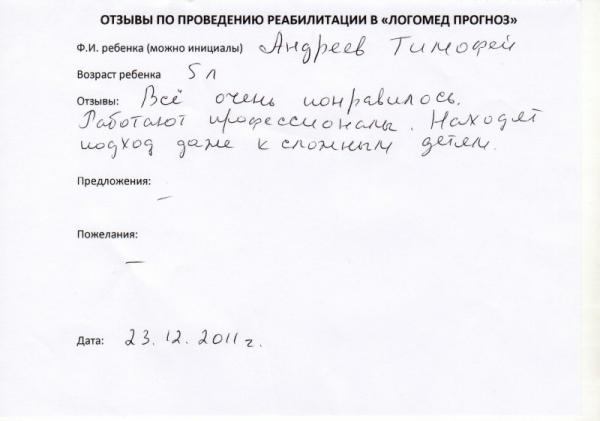 ОТЗЫВЫ ПО ПРОВЕДЕНИЮ РЕАБИЛИТАЦИИ В «ЛОГОМЕД ПРОГНОЗ»
Ф.И. ребенка (можно инициалы) Андреев Тимофей
Возраст ребенка 5 л
Отзывы: Всё очень понравилось.
Работают профессионалы. Находят
подход даже к сложным детям.
Предложения:
–
Пожелания:
—
Дата: 23.12.2011 г.